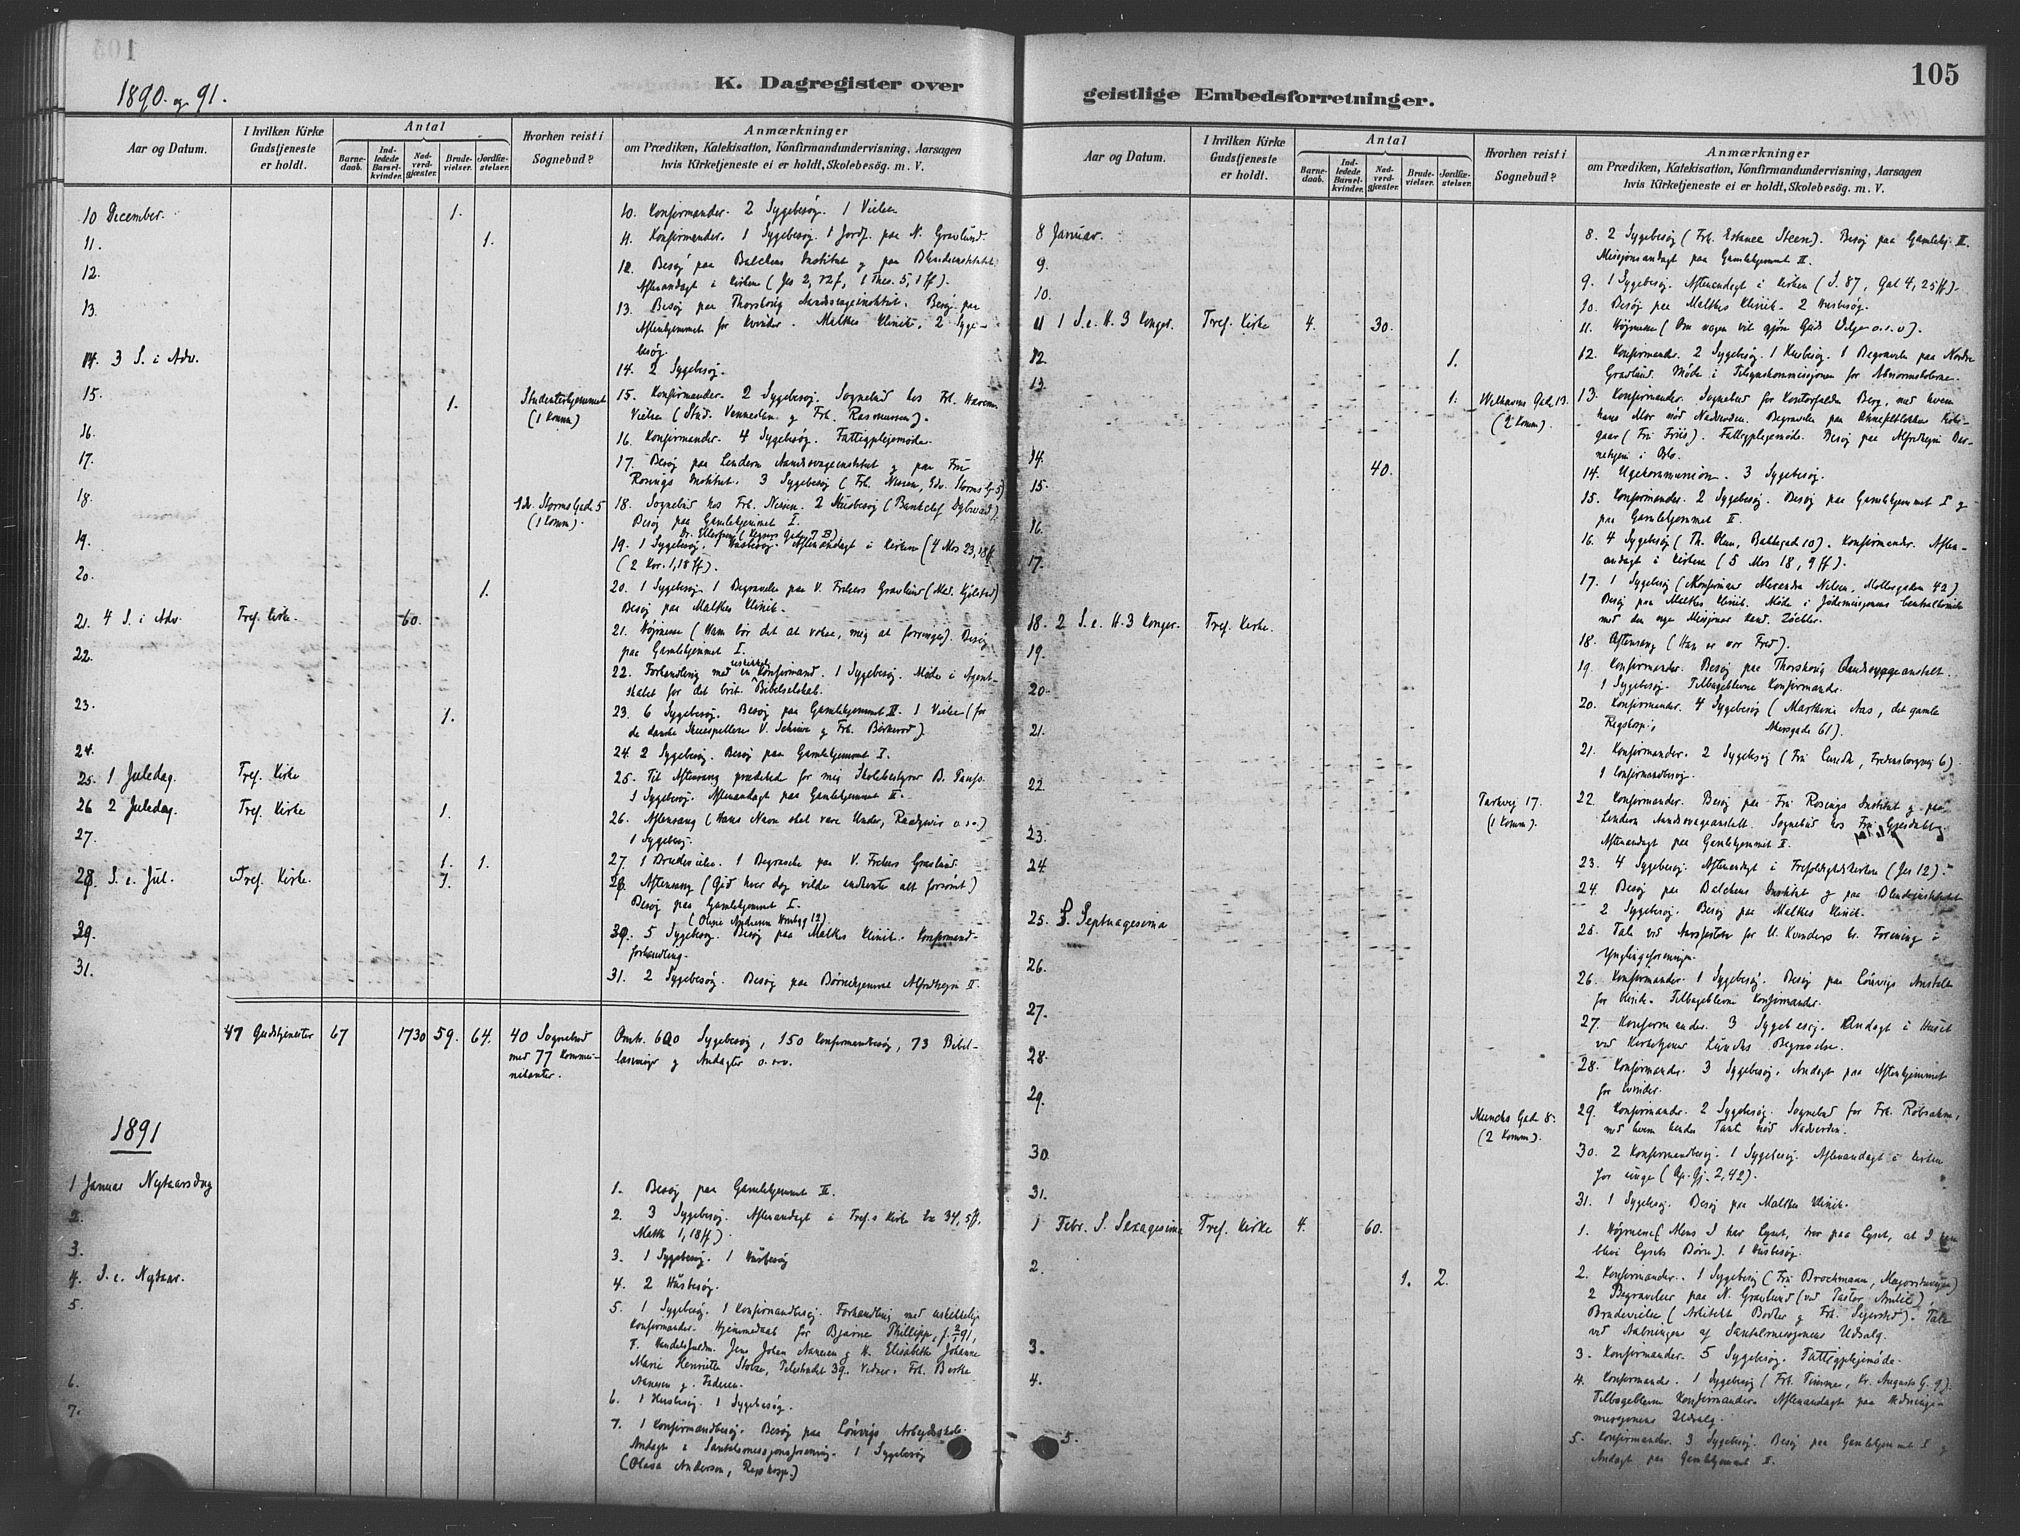 105
1890 og 91.
K. Dagregister over
Aar og Datum.
I hvilken Kirke Gudstjeneste er holdt.
Antal
Barnedaab.
Indledede Barselkvinder.
Nadverdgjæster.
Brudevielser.
Jordfæstelser.
Hvorhen reist i Sognebud?
Anmærkninger
om Prædiken, Katekisation, Konfirmandundervisning, Aarsagen
hvis Kirketjeneste ei er holdt, Skolebesøg. m. V.
10 December. 1. 10. Konfirmander. 2 Sygebesøg. 1 Vielse
11. 1. 11. Konfirmander. 1 Sygebesøg. 1 Jordf. paa N. Gravlund.
12. 12. Besøg paa Balchens Institut og paa Blindeinstitutet.
Aftenandagt i Kirken (Jes 2, 1 Thes. 5, 1 ff).
13. 13. Besøg paa Thorshovs Aandssvageinstitut. Besøg paa
Aftenhjemmet for Kvinder. Malthes Klinik, 2 Syge-
besøg.
14. 3 S. i Adv. 14. 2 Sygebesøg.
15. 1. Studenterhjemmet 15. Konfirmander. 2 Sygebesøg. Sognebud hos Frk.
(1 Komm) Vielse (Stud. Vennesten og Frk. Rasmussen).
16. 16. Konfirmander. 4 Sygebesøg. Fattigplejemøde.
17. 17. Besøg paa Lindern Aandssvageinstitut og paa Fru
Rosings Institut. 3 Sygebesøg (Frk. Nissen, Edv. Storms G. 5)
18. Edv. Storms Gad. 5 18. Sognebud hos Frk. Nissen. 2 Husbesøg (Bankchef Dybwad).
(1 Komm). Besøg paa Gamlehjemmet I.
19. 19. 1 Sygebesøg. 1 Husbesøg. Aftenandagt i Kirken (4 Mos 23, 18 ff
(2 Kor. 1, 18 ff).
20. 1. 20. 1 Sygebesøg. 1 Begravelse paa V. Frelsers Gravlund
Besøg paa Malthes Klinik.
21. 4 S. i Adv. Tref. Kirke. 60. 21. Højmesse (Ham bør det at vokse, mig at forringes). Besøg
paa Gamlehjemmet I.
22. 22. Forhandling med en Konfirmand. 1 Sygebesøg. Møde i Agent-
skabet for det brit. Bibelselskab.
23. 1. 23. 6 Sygebesøg. Besøg paa Gamlehjemmet II. 1 Vielse (for
de danske Skuespillere V. Schiwe og Frk.
24. 24. 2 Sygebesøg. Besøg paa Gamlehjemmet I.
25. 1 Juledag. Tref. Kirke 25. Til Aftensang prædiked for mig Skolebestyrer B. Pauss.
1 Sygebesøg. Aftenandagt paa Gamlehjemmet II.
26 2 Juledag. Tref. Kirke 1. 26. Aftensang (Hans Navn skal være Under, Raadgiver o.s.v.)
1 Sygebesøg.
27. 1. 1. 27. 1 Brudevielse. 1 Begravelse paa V. Frelsers Gravlund.
28. S. e. Jul. Tref. Kirke. 1. 28. Aftensang (Gid hver dag vilde indhente alt forsømt)
Besøg paa Gamlehjemmet I.
30. 30. 5 Sygebesøg. Besøg paa Malthes Klinik. Konfirmand-
forhandling.
31. 31. 2 Sygebesøg. Besøg paa Børnehjemme Alfredheim II.
47 Gudstjenester 67 1730 59. 64. 40 Sognebud Omtr. 600 Sygebesøg, 150 Konfirmandbesøg, 73 Bibel-
med 77 Kommu- læsninger og Andagter o.s.v.
nikanter.
1891
1 Januar Nytaarsdag 1. Besøg paa Gamlehjemmet II.
2. 2. 3 Sygebesøg. Aftenandagt i Tref.s Kirke Ex 34, 5 ff,
Matth 1, 18 ff).
3. 3. 1 Sygebesøg. 1 Husbesøg
4. S. e. Nytaar. 4. 2 Husbesøg.
5. 5. 1 Sygebesøg. 1 Konfirmandbesøg. Forhandling med uskikkelige
Konfirmander. Hjemmedaab for Bjarne Phillipp,
F. Handelsfuldm. Jens Johan Nansen og H. Elisabeth Johanne
Marie Henriette Stolze, 39. Vidner. Frk.
Nansen og Faderen.
6. 6. 1 Husbesøg. 1 Sygebesøg.
7. 7. 1 Konfirmandbesøg. Besøg paa Lønvigs Arbejdsskole.
Andagt i Santalmissionsforening. 1 Sygebesøg
(Olava Anderson, Rigshosp.)
105
geistlige Embedsforretninger.
Aar og Datum.
I hvilken Kirke Gudstjeneste er holdt.
Antal
Barnedaab.
Indledede Barselkvinder.
Nadverdgjæster.
Brudevielser.
Jordfæstelser.
Hvorhen reist i Sognebud?
Anmærkninger
om Prædiken, Katekisation, Konfirmandundervisning, Aarsagen
hvis Kirketjeneste ei er holdt, Skolebesøg. m. V.
8 Januar. 8. 2 Sygebesøg (Frk. Steen). Besøg paa Gamlehj. II.
Missionsandagt paa Gamlehjemmet II.
9. 9. 1 Sygebesøg. Aftenandagt i Kirken (S. 87, Gal 4, 25 ff).
10. 10. Besøg paa Malthes Klinik. 2 Husbesøg.
11 1 S. e. H. 3 Konger. Tref. Kirke 4. 30. 11. Højmesse (Om nogen vil gjøre Guds Vilje o.s.v).
12. 1. 12. Konfirmander. 2 Sygebesøg. 1 Husbesøg. 1 Begravelse paa Nordre
Gravlund. Møde i Tilsynskommissionen for Abnormskolerne.
13. 1. Welhavens Gad. 13. 13. Konfirmander. Sognebud for Kontorfuldm. Berg, med hvem
(2 Komm). hans Mor nød Nadverden. Begravelse paa
(Fru Friis). Fattigplejemøde. Besøg paa Alfredheim Bør-
nehjem i Oslo.
14. 40. 14. Ugekommunion. 3 Sygebesøg.
15. 15. Konfirmander. 2 Sygebesøg. Besøg paa Gamlehjemmet I og
paa Gamlehjemmet II.
16. 16. 4 Sygebesøg (Th. Olsen, 10). Konfirmander. Aften-
andagt i Kirken (5 Mos 18, 9 ff).
17. 17. 1 Sygebesøg (Nielsen, Møllergaden 42)
Besøg paa Malthes Klinik. Møde i Jødemissionens Centralkomite
med den nye Missionær Kand. Zöckler.
18. 2 S. e. H. 3 Konger. Tref. Kirke. 18. Aftensang (Han er vor Fred).
19. 19. Konfirmander. Besøg paa Thorshovs Aandssvageanstalt.
1 Sygebesøg. Tilbageblevne Konfirmander.
20. 20. Konfirmander. 4 Sygebesøg (Marthine Aas, det gamle
Rigshosp., Akersgade 61).
21. 21. Konfirmander. 2 Sygebesøg (Fru Lundh, Fredensborgvej 6).
1 Konfirmandbesøg.
22. Parkvej 17. 22. Konfirmander. Besøg paa Fru Rosings Institut og paa
(1 Komm). Lindern Aandssvageanstalt. Sognebud hos Fru
Aftenandagt paa Gamlehjemmet II.
23. 23. 4 Sygebesøg. Aftenandagt i Trefoldighedskirken (Jes 12).
24. 24. Besøg paa Balchens Institut og paa Blindeinstitutet
2 Sygebesøg. Besøg paa Malthes Klinik.
25. S. Septuagesima 25. Tale ved Aarsfesten for U. Kvinders kr. Forening i
Ynglingeforeningen.
26. 26. Konfirmander. 1 Sygebesøg. Besøg paa Lønvigs Anstalt
for Tilbageblevne Konfirmander.
27. 27. Konfirmander. 3 Sygebesøg. Andagt i Huset
ved Kirketjener Lunds Begravelse.
28. 28. Konfirmander. 3 Sygebesøg. Andagt paa Aftenhjemmet
for Kvinder.
29. Munchs Gad 8. 29. Konfirmander. 2 Sygebesøg. Sognebud for Frk. Robsahm,
(2 Komm). med hvem hendes Tante nød Nadverden.
30 30. 2 Konfirmandbesøg. 1 Sygebesøg. Aftenandagt i Kirken
for unge (Ap. Gj. 2, 42).
31. 31. 1 Sygebesøg. Besøg paa Malthes Klinik.
1 Febr. S. Sexagesima Tref. Kirke 4. 60. 1. Højmesse (Mens I har Lyset, tror paa Lyset, at I kan
blive Lysets Børn). 1 Husbesøg.
2. 1. 2. 2. Konfirmander. 1 Sygebesøg (Fru Brochmann, Majorstuvejen)
2 Begravelser paa N. Gravlund (ved Pastor Amlie).
Brudevielse (Arkitekt og Frk. Sejersted). Tale
ved Aabningen af Santalmissionens Udsalg.
3. 3. Konfirmander. 5 Sygebesøg. Fattigplejemøde.
4. 4. Konfirmander. 1 Sygebesøg (Frk. Kr. Augusts G. 9).
Tilbageblevne Konfirmander. Aftenandagt paa Hedninge-
missionens Udsalg.
5. 5. Konfirmander. 3 Sygebesøg. Besøg paa Gamlehjemmet I og
Andagt paa Gamlehjemmet II.